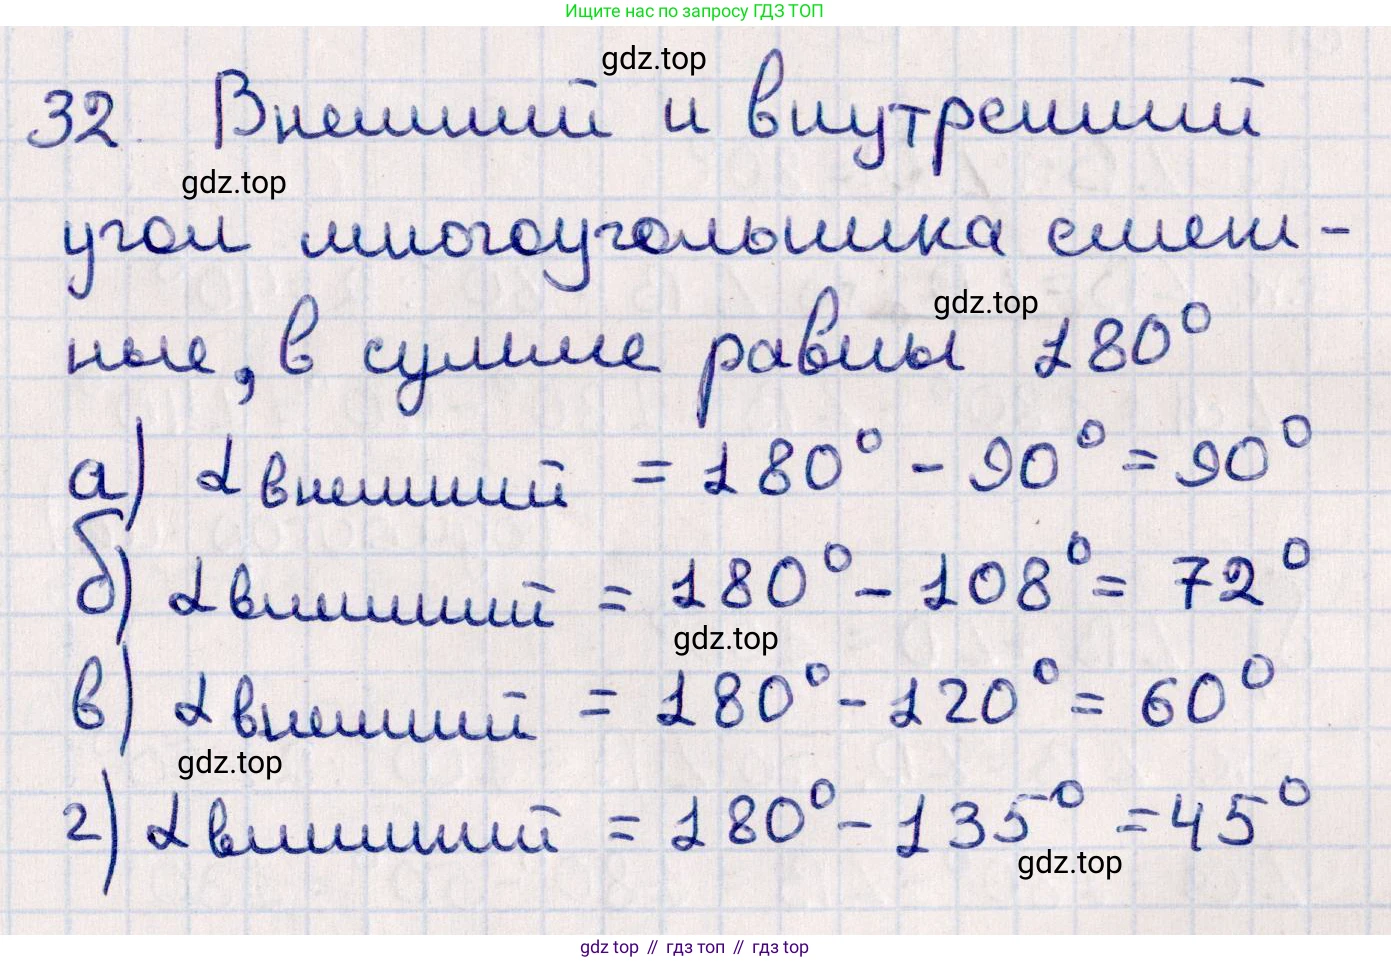 Ищите нас по запросу ГДЗ ТОП
gdz.top
32. Внешний и внутренний
gdz.top
угол многоугольника смеж-
gdz.top
ные, в сумме равны 180°
а) α внешний = 180° - 90° = 90°
б) α внешний = 180° - 108° = 72°
gdz.top
в) α внешний = 180° - 120° = 60°
gdz.top
г) α внешний = 180° - 135° = 45°
gdz.top
gdz top // гдз топ // гдз top